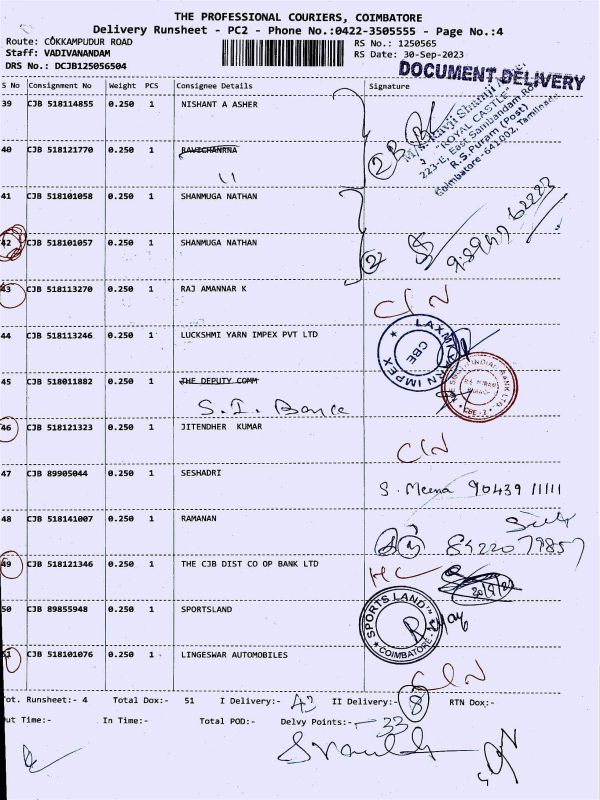 THE PROFESSIONAL COURIERS, COIMBATORE
Delivery Runsheet - PC2 - Phone No.:0422-3505555 - Page No.:4
Route: COKKAMPUDUR ROAD
RS No.: 1250565
Staff: VADIVANANDAM
RS Date: 30-Sep-2023
DRS No.: DCJB125056504
DOCUMENT DELIVERY
S No Consignment No Weight PCS Consignee Details Signature
39 CJB 518114855 0.250 1 NISHANT A ASHER
"ROYAL CASTLE"
223-E, East Sambandam Ro
R.S.Puram (Post)
Coimbatore-641002, Tamilnadu
40 CJB 518121770 0.250 1 RAVICHANRNA
11
2
41 CJB 518101058 0.250 1 SHANMUGA NATHAN
42 CJB 518101057 0.250 1 SHANMUGA NATHAN
2
43 CJB 518113270 0.250 1 RAJ AMANNAR K
CIN
44 CJB 518113246 0.250 1 LUCKSHMI YARN IMPEX PVT LTD
LAXMI YARN IMPEX
CBE
45 CJB 518011882 0.250 1 THE DEPUTY COMM
S.I. Bance
SOUTH INDIAN BANK LTD
R.S. PURAM
BRANCH
CBE-2
46 CJB 518121323 0.250 1 JITENDHER KUMAR
CIN
47 CJB 89905044 0.250 1 SESHADRI
S. Meena 90439 11111
48 CJB 518141007 0.250 1 RAMANAN
84220 79857
49 CJB 518121346 0.250 1 THE CJB DIST CO OP BANK LTD
HC
50 CJB 89855948 0.250 1 SPORTSLAND
SPORTS LAND™
COIMBATORE
51 CJB 518101076 0.250 1 LINGESWAR AUTOMOBILES
CIN
Tot. Runsheet:- 4 Total Dox:- 51 I Delivery:- 43 II Delivery:- 8 RTN Dox:-
Out Time:- In Time:- Total POD:- Delvy Points:- 33